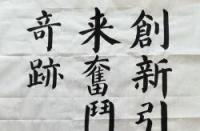 創新引
来奮鬥
奇跡